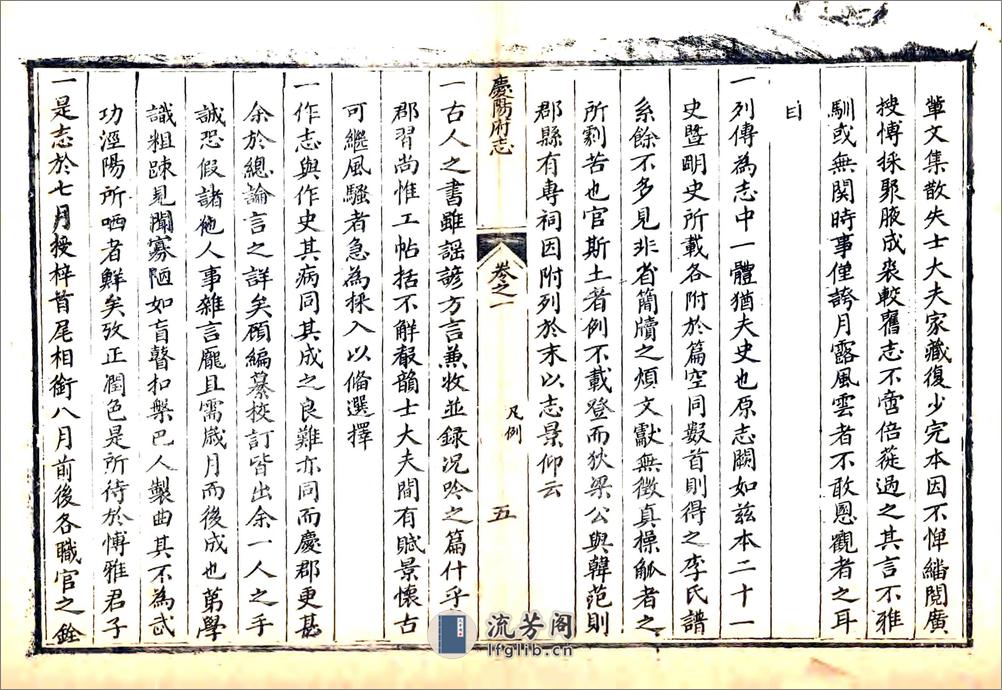 葷文集散失士大夫家藏復少完本因不憚繙閱廣
搜博採聚腋成裘較舊志不啻倍蓰過之其言不雅
馴或無関時事僅誇月露風雲者不敢慁觀者之耳
目
一列傳為志中一體猶夫史也原志闕如兹本二十一
史暨明史所載各附於篇空同數首則得之李氏譜
系餘不多見非省簡牘之煩文獻無徵真操觚者之
所剿苦也官斯土著例不載登而狄梁公與韓范則
郡縣有專祠因附列於末以志景仰云
慶陽府志
卷之一
凡例
五
一古人之書雖謡諺方言兼收並録况吟之篇什乎
郡習尚惟工帖括不解聲韻士大夫間有賦景懷古
可繼風騷者急為採入以俻選擇
一作志與作史其病同其成之良難亦同而慶郡更甚
余於總論言之詳矣顧編纂校訂皆出余一人之手
誠恐假諸他人事雜言龐且需歲月而後成也第學
識粗踈見聞寡陋如盲瞽扣槃巴人製曲其不為武
功涇陽所哂者鮮矣攷正潤色是所待於博雅君子
一是志於七月授梓首尾相銜八月前後各職官之銓
流芳阁
lfglib.cn